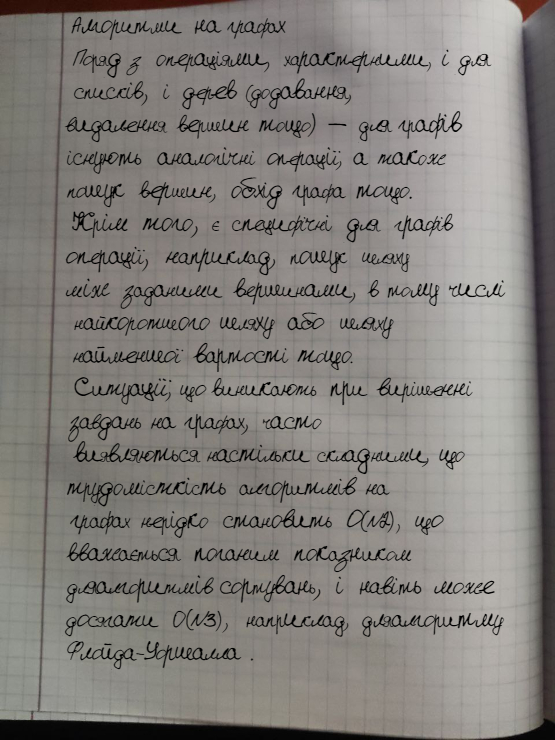 Алгоритми на графах
Поряд з операціями, характерними, і для
списків, і дерев (додавання,
видалення вершин тощо) — для графів
існують аналогічні операції, а також
пошук вершин, обхід графа тощо.
Крім того, є специфічні для графів
операції, наприклад, пошук шляху
між заданими вершинами, в тому числі
найкоротшого шляху або шляху
найменшої вартості тощо.
Ситуації, що виникають при вирішенні
завдань на графах, часто
виявляються настільки складними, що
трудомісткість алгоритмів на
графах нерідко становить O(N2), що
вважається поганим показником
дляалгоритмів сортувань, і навіть може
досягати O(N3), наприклад, дляалгоритму
Флойда-Уоршалла.